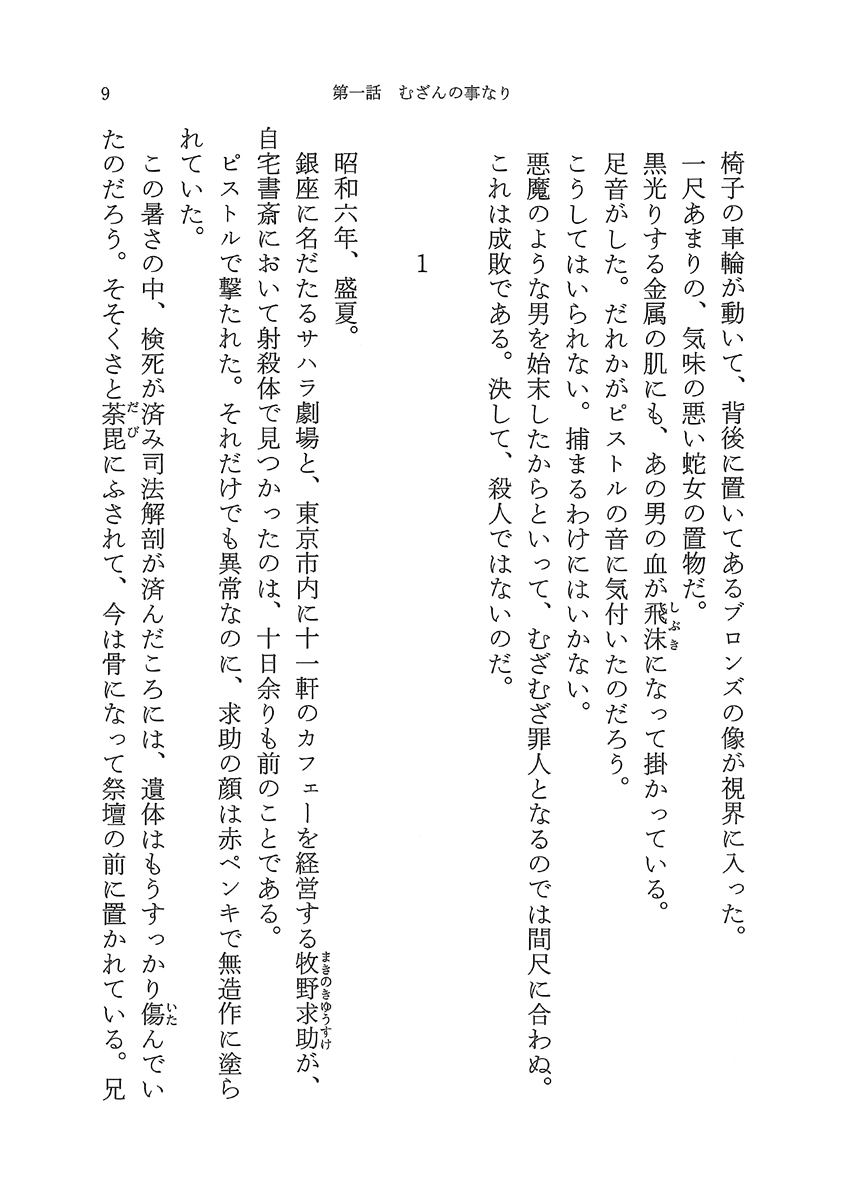 9
第一話　むざんの事なり
椅子の車輪が動いて、背後に置いてあるブロンズの像が視界に入った。
一尺あまりの、気味の悪い蛇女の置物だ。
黒光りする金属の肌にも、あの男の血が飛沫になって掛かっている。
しぶき
足音がした。だれかがピストルの音に気付いたのだろう。
こうしてはいられない。捕まるわけにはいかない。
悪魔のような男を始末したからといって、むざむざ罪人となるのでは間尺に合わぬ。
これは成敗である。決して、殺人ではないのだ。
1
昭和六年、盛夏。
銀座に名だたるサハラ劇場と、東京市内に十一軒のカフェーを経営する牧野求助が、
まきのきゆうすけ
自宅書斎において射殺体で見つかったのは、十日余りも前のことである。
ピストルで撃たれた。それだけでも異常なのに、求助の顔は赤ペンキで無造作に塗ら
れていた。
この暑さの中、検死が済み司法解剖が済んだころには、遺体はもうすっかり傷んでい
いた
たのだろう。そそくさと荼毘にふされて、今は骨になって祭壇の前に置かれている。兄
だび